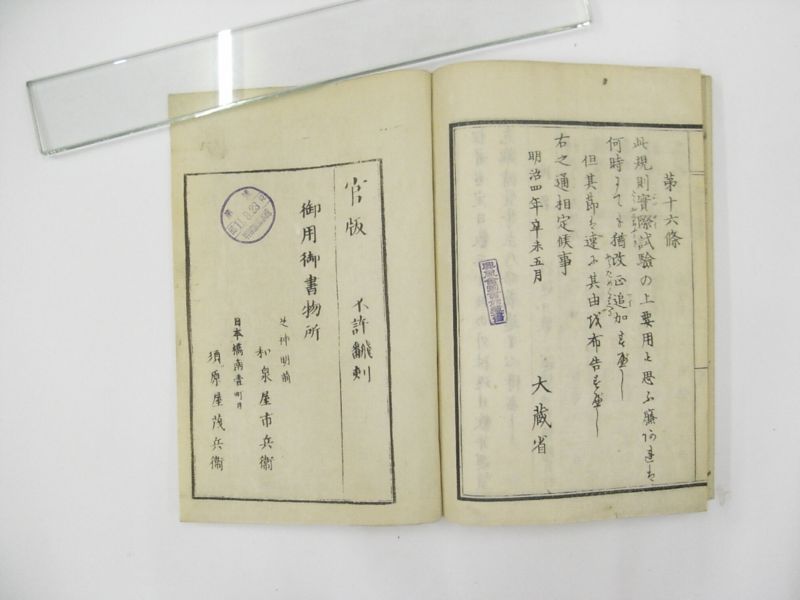 第十六條
此規則實際試驗の上要用と思ふ廉あれは
何時にても猶改正追加すへし
但其節は速に其由を布告すへし
右之通相定候事
明治四年辛未五月
大藏省
官版 不許飜刻
御用御書物所
芝神明前
和泉屋市兵衛
日本橋南壹町目
須原屋茂兵衛